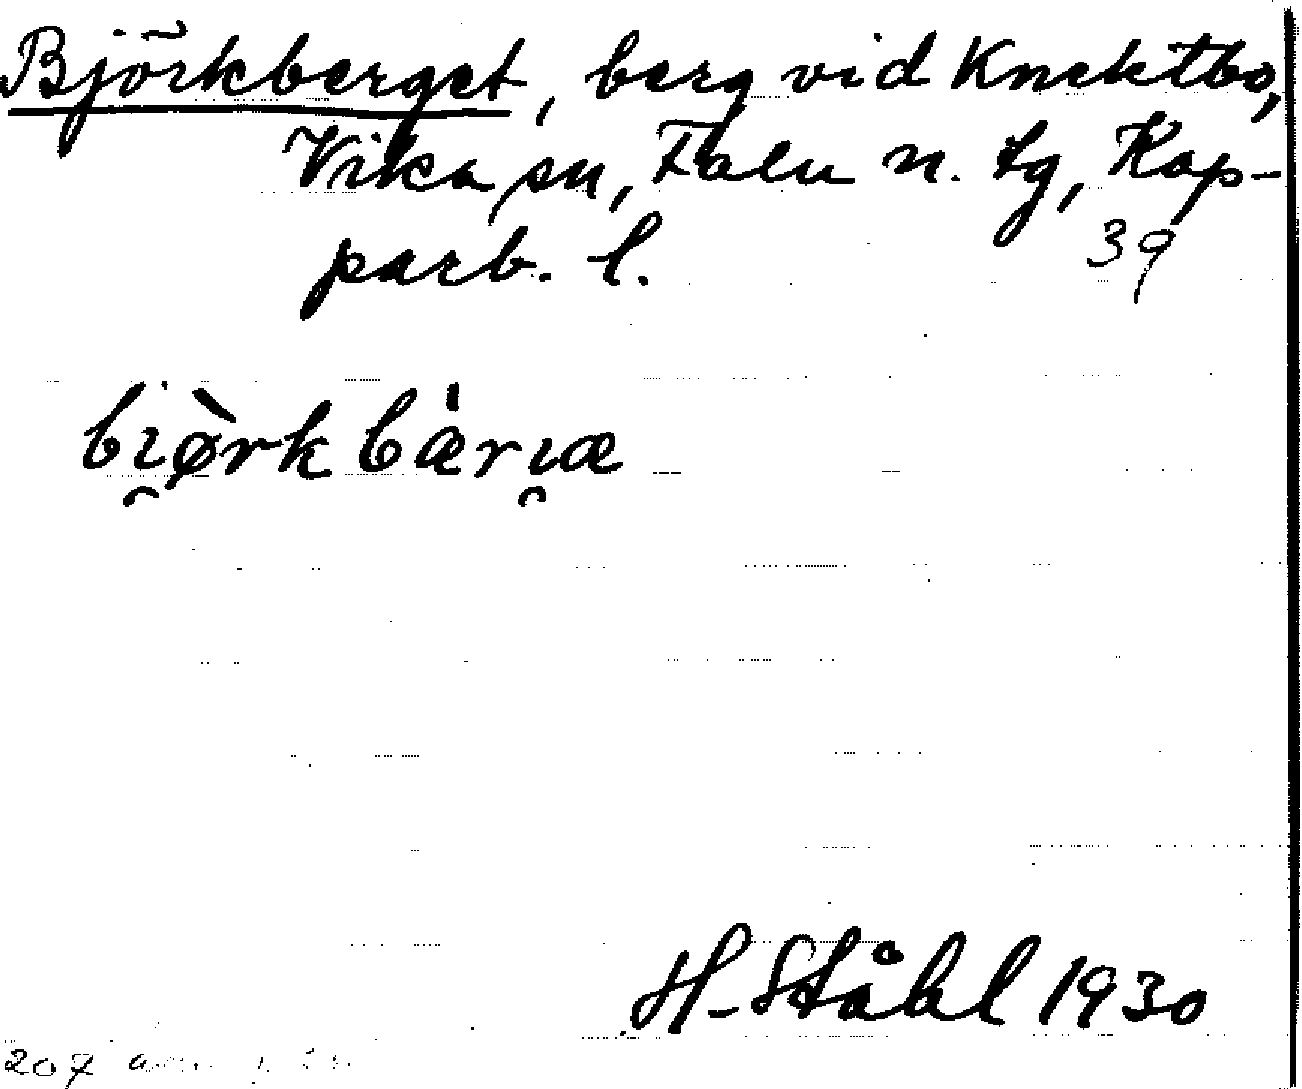 Björkberget, berg vid Knektbo,
Vika sn, Falu n. tg, Kop-
parb. l.
39
bi̯ø̀rkbæ̀rı̯æ
H. Ståhl 1930
207